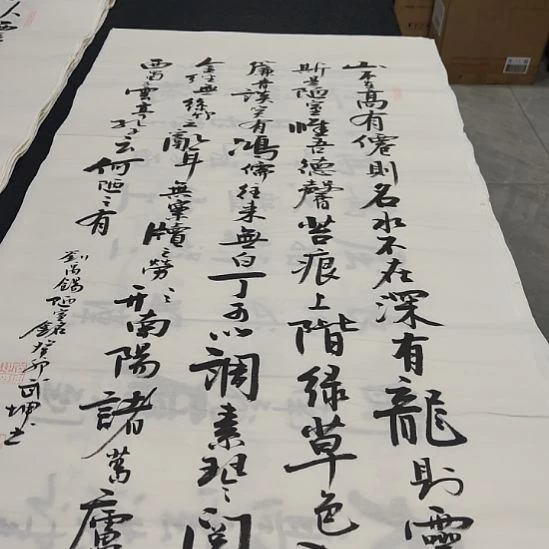 山不在高有僊則名水不在深有龍則靈
斯是陋室惟吾德馨苔痕上階綠草色
簾青談笑有鴻儒往來無白丁可以調素琴閱
金經無絲竹之亂耳無案牘之勞形南陽諸葛廬
西蜀子雲亭孔子云何陋之有
劉禹錫陋室銘癸卯武坤書